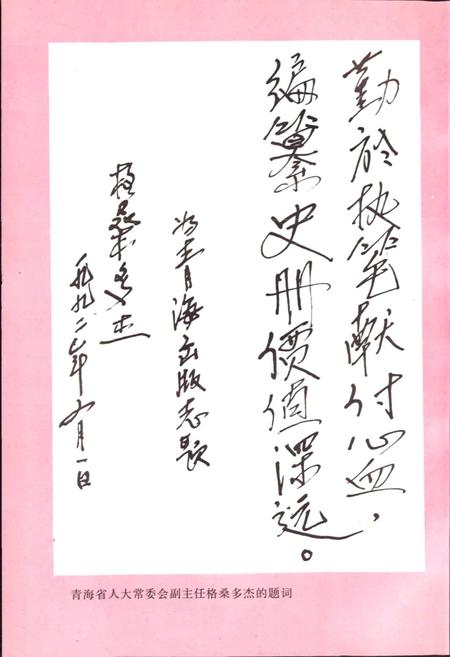 勤於执笔献付心血，
编纂史册價值深远。
为青海出版志题
格桑多杰
一九九二年九月一日
青海省人大常委会副主任格桑多杰的题词